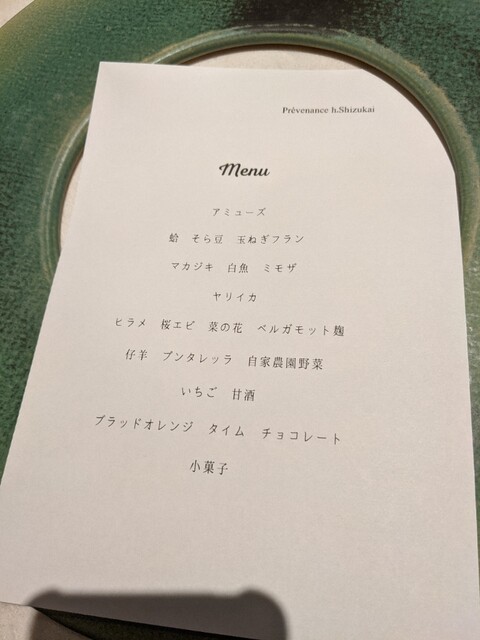 Prèvenance h.Shizukai
Menu
アミューズ
蛤 そら豆 玉ねぎフラン
マカジキ 白魚 ミモザ
ヤリイカ
ヒラメ 桜エビ 菜の花 ベルガモット麹
仔羊 プンタレッラ 自家農園野菜
いちご 甘酒
ブラッドオレンジ タイム チョコレート
小菓子